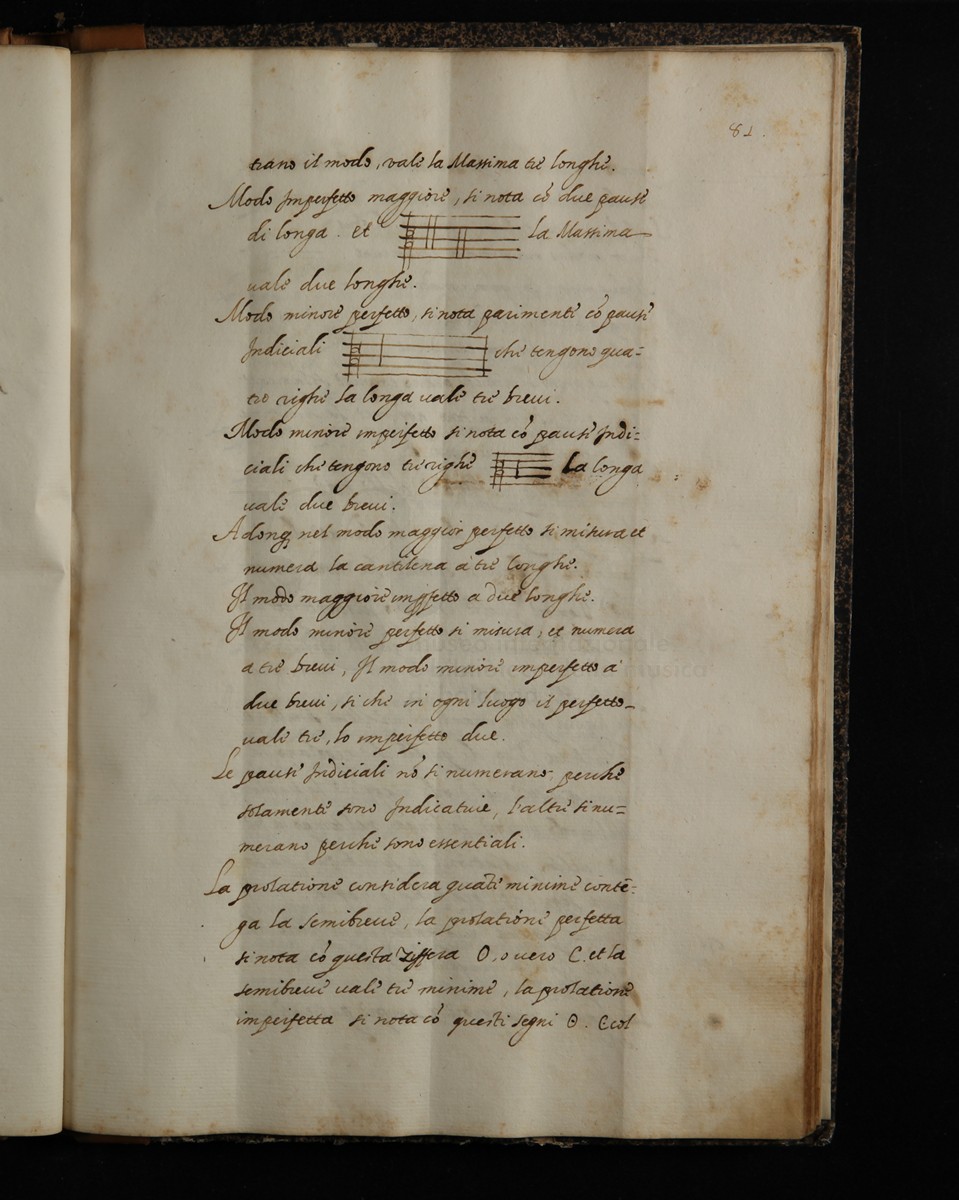 81.
trano il modo, vale la Massima tre longhe.
Modo Imperfetto maggiore, si nota cō due pause
di longa. et la Massima
vale due longhe.
Modo minore perfetto, si nota parimente cō pause
Indiciali che tengono qua=
tro righe la longa vale tre brevi.
Modo minore imperfetto si nota cō pause Indi=
ciali che tengono tre righe la longa
vale due brevi.
Adonq nel modo maggior perfetto si misura et
numera la cantilena a tre longhe.
Il modo maggiore imperfetto a due longhe.
Il modo minore perfetto si misura, et numera
a tre brevi, Il modo minore imperfetto a
due brevi, si che in ogni luogo il perfetto
vale tre, lo imperfetto due.
Le pause Indiciali nō si numerano perche
solamente sono Indicative, l'altre si nu=
merano perche sono essentiali.
La prolatione considera quāte minime contē=
ga la semibreve, la prolatione perfetta
si nota cō questa Ziffera O, o vero C. et la
semibreve vale tre minime, la prolatione
imperfetta si nota cō questi segni ʘ. C col